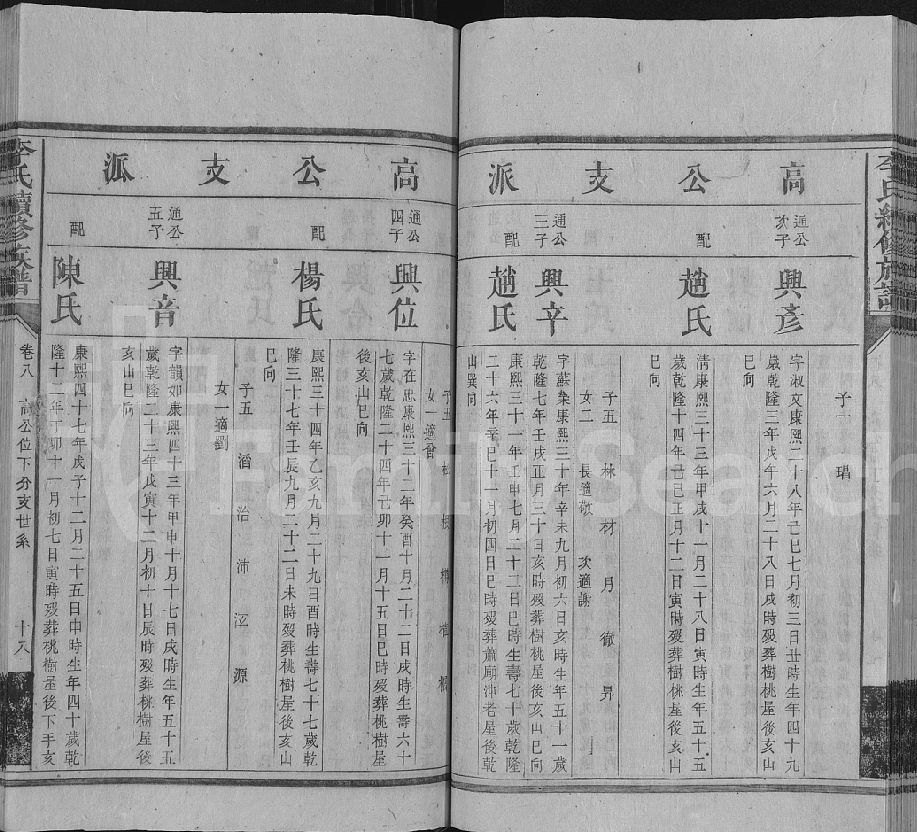 李氏續修族譜
高公支派
子一 琩
通公次子
興彥
字淑文康熙二十八年己巳七月初三日丑時生年四十九
歲乾隆三年戊午六月二十八日戌時歿葬桃樹屋後亥山
巳向
配
趙氏
清康熙三十三年甲戌十一月二十八日寅時生年五十五
歲乾隆十四年己巳正月十二日寅時歿葬桃樹屋後亥山
巳向
子五 林 材 月 徹 昇
女二 長適敬 次適謝
通公三子
興辛
字蘇桑康熙三十年辛未九月初六日亥時生年五十一歲
乾隆七年壬戌正月三十日亥時歿葬桃樹屋後亥山巳向
配
趙氏
康熙三十一年壬申七月二十二日巳時生壽七十歲乾隆
二十六年辛巳十一月初四日巳時歿葬蕭廟沖老屋後乾
山巽向
高公支派
子五 松
女一適曾
通公四子
興位
字在思康熙三十二年癸酉十月二十二日戌時生壽六十
七歲乾隆二十四年己卯十一月十五日巳時歿葬桃樹屋
後亥山巳向
配
楊氏
康熙三十四年乙亥九月二十九日酉時生壽七十七歲乾
隆三十七年壬辰九月二十二日未時歿葬桃樹屋後亥山
巳向
子五 濳 治 沛 泟 源
女一適劉
通公五子
興音
字韻如康熙四十三年甲申十月十七日戌時生年五十五
歲乾隆二十三年戊寅十二月初十日辰時歿葬桃樹屋後
亥山巳向
配
陳氏
康熙四十七年戊子十二月二十五日申時生年四十歲乾
隆十二年丁卯十一月初七日寅時歿葬桃樹屋後下手亥
李氏續修族譜
卷八 高公位下分支世系 十八
FamilySearch